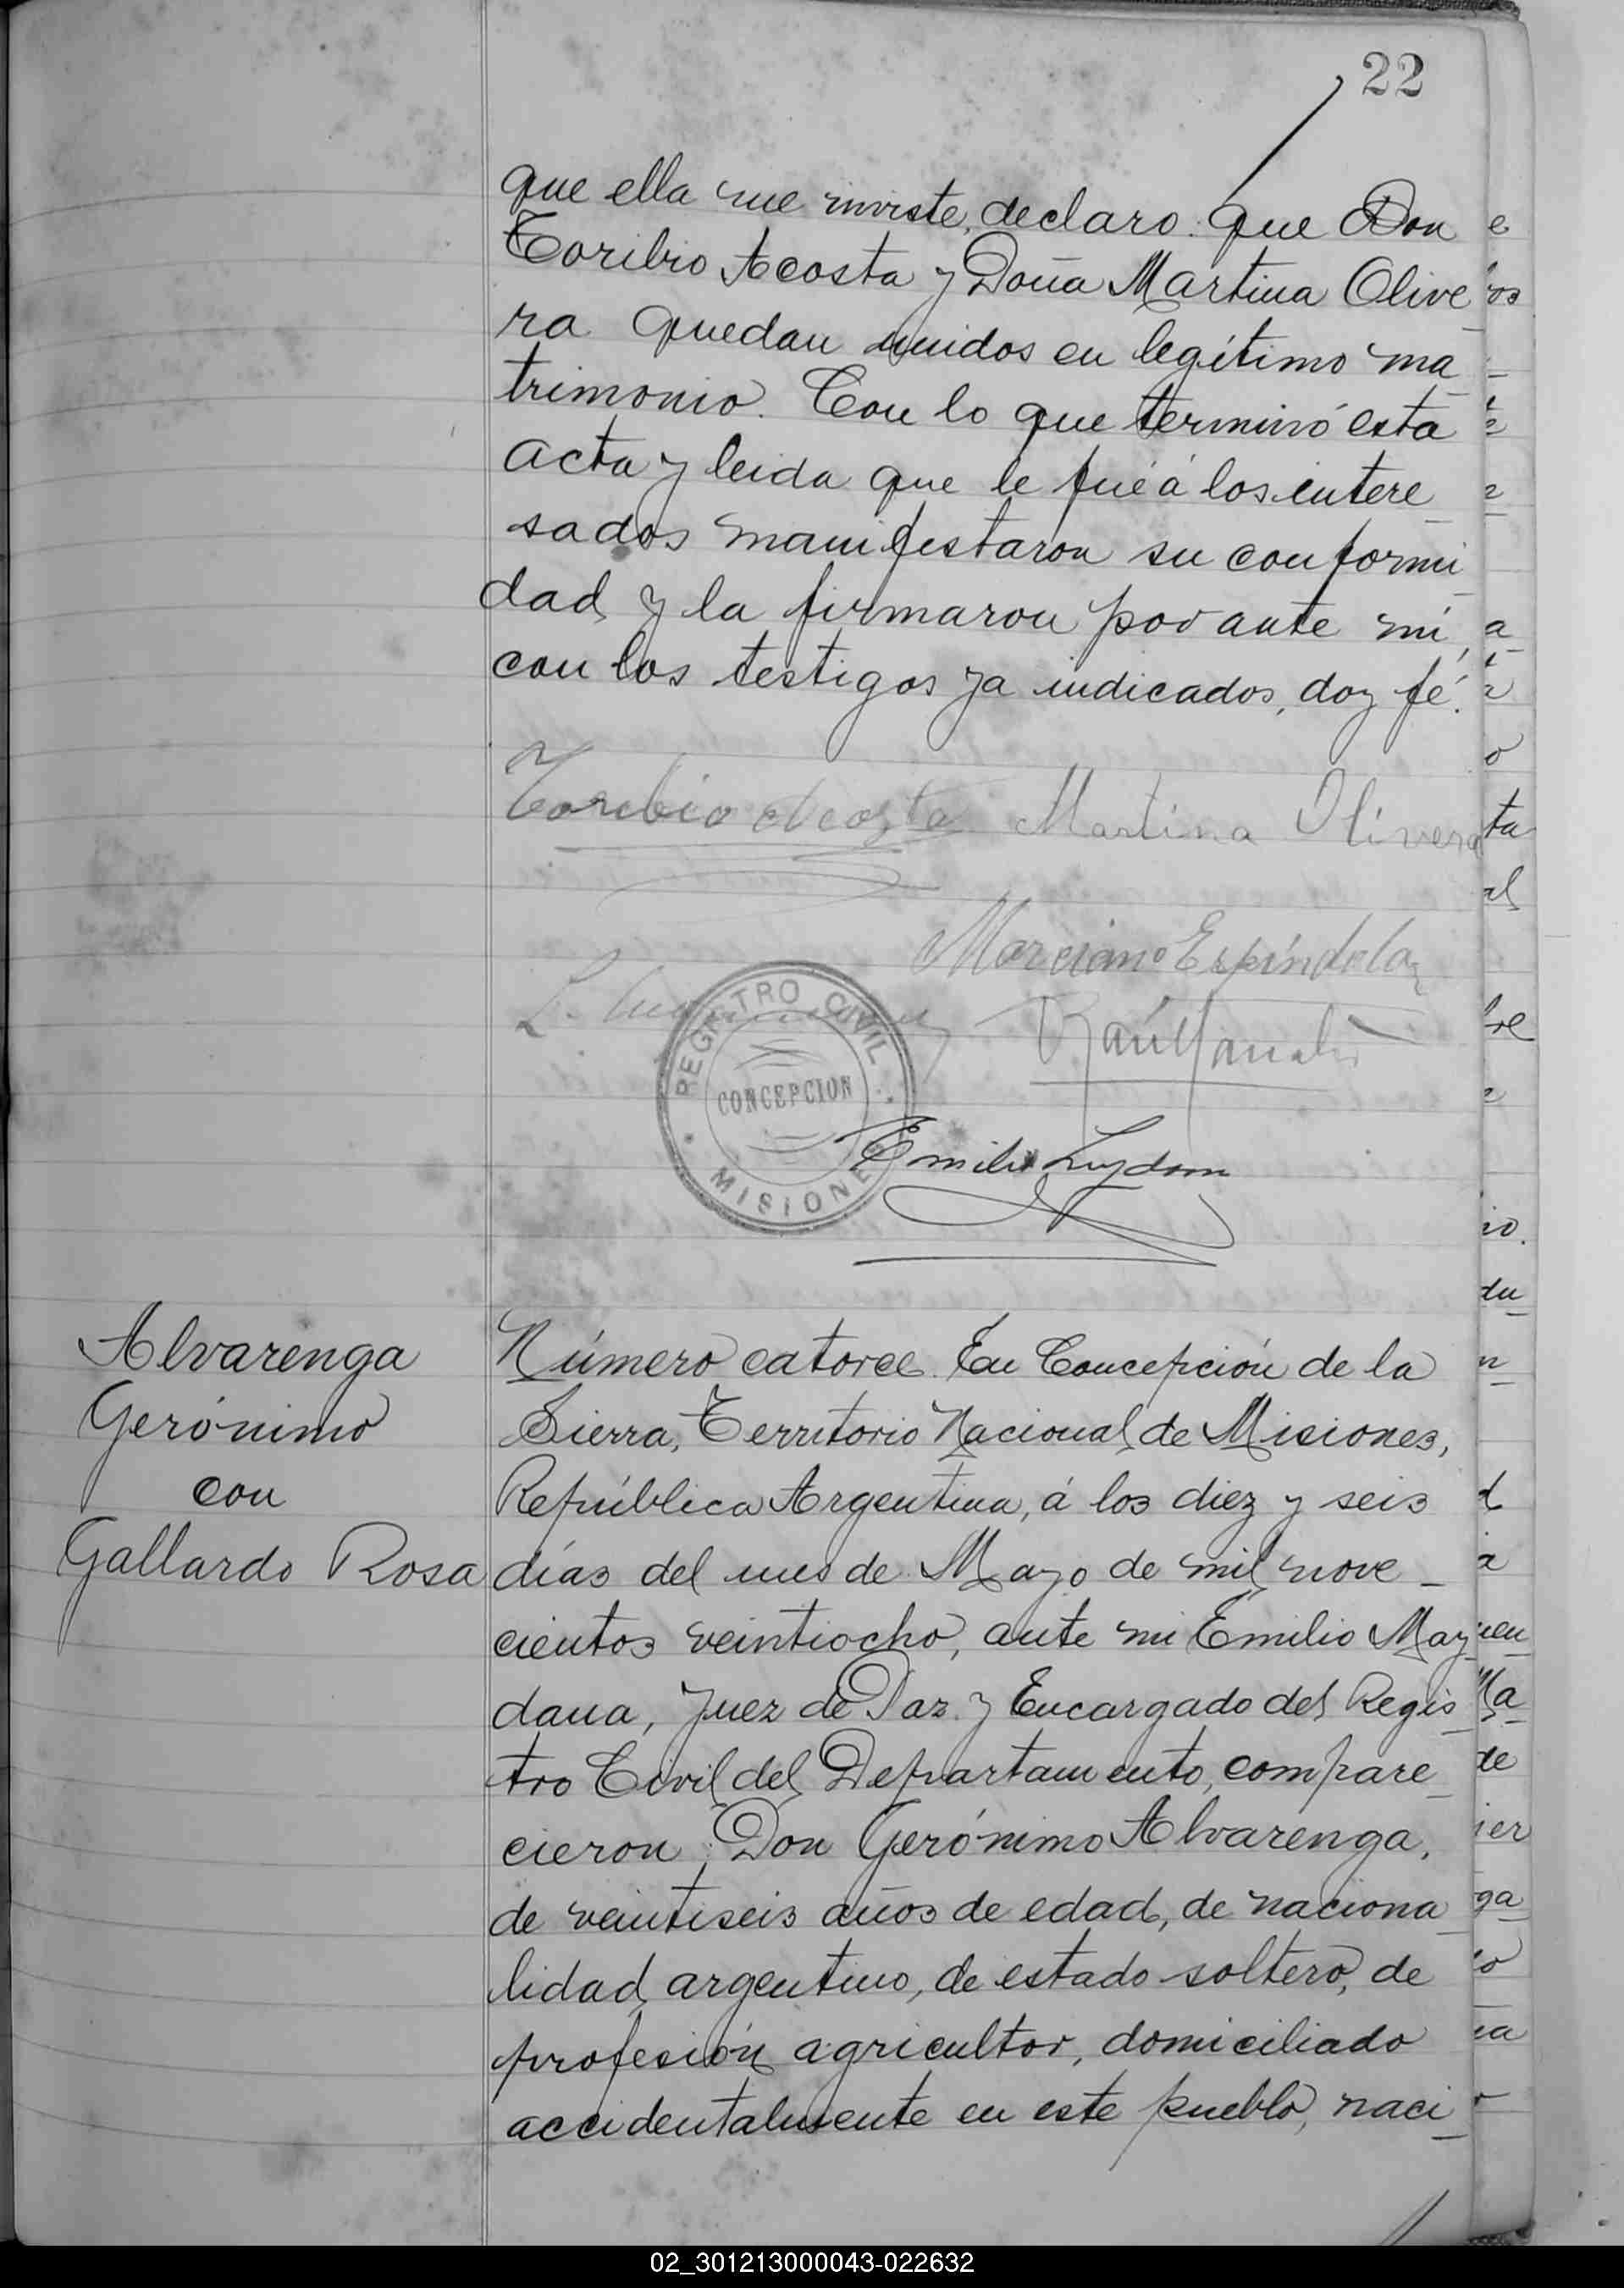 22
que ella me inviste, declaro: que Don
Toribio Acosta y Doña Martina Olive
ra quedan unidos en legítimo ma
trimonio. Con lo que terminó esta
acta y leida que le fué á los intere
sados manifestaron su conformi
dad y la firmaron por ante mí,
con los testigos ya indicados, doy fé.
Toribio Acosta Martina Olivera
Marciano Espíndola
L.
Raúl
REGISTRO CIVIL
CONCEPCION
MISIONES
Emilio
Alvarenga
Gerónimo
con
Gallardo Rosa
Número catorce. En Concepción de la
Sierra, Territorio Nacional de Misiones,
República Argentina, á los diez y seis
días del mes de Mayo de mil nove-
cientos veintiocho, ante mi Emilio May
dana, Juez de Paz y Encargado del Regis
tro Civil del Departamento, compare
cieron: Don Gerónimo Alvarenga,
de veintiseis años de edad, de naciona
lidad argentino, de estado soltero, de
profesión agricultor, domiciliado
accidentalmente en este pueblo, naci
02_301213000043-022632